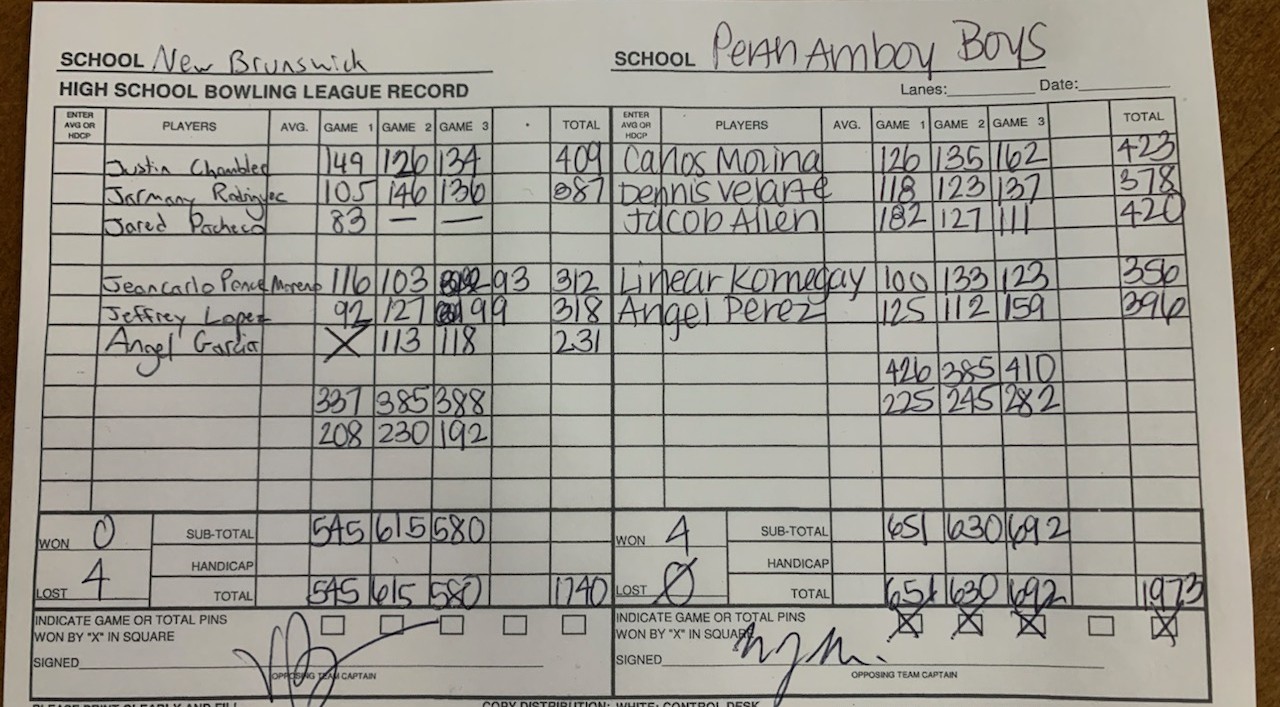 SCHOOL New Brunswick SCHOOL Perth Amboy Boys
HIGH SCHOOL BOWLING LEAGUE RECORD Lanes: Date:
ENTER AVG OR HDCP PLAYERS AVG. GAME 1 GAME 2 GAME 3 TOTAL ENTER AVG OR HDCP PLAYERS AVG. GAME 1 GAME 2 GAME 3 TOTAL
Justin Chambler 149 126 134 409 Carlos Molina 126 135 162 423
Jarmany Rodriguez 105 146 136 387 Dennis Velarte 118 123 137 378
Jared Pacheco 83 — — Jacob Allen 182 127 111 420
Jeancarlo Ponce Moreno 116 103 93 312 Linear Komegay 100 133 123 356
Jeffrey Lopez 92 127 99 318 Angel Perez 125 112 159 396
Angel Garcia X 113 118 231
426 385 410
337 385 388 225 245 282
208 230 192
WON 0 SUB-TOTAL 545 615 580 WON 4 SUB-TOTAL 651 630 692
HANDICAP HANDICAP
LOST 4 TOTAL 545 615 580 1740 LOST 0 TOTAL 651 630 692 1973
INDICATE GAME OR TOTAL PINS INDICATE GAME OR TOTAL PINS
WON BY "X" IN SQUARE WON BY "X" IN SQUARE X X X X
SIGNED SIGNED
OPPOSING TEAM CAPTAIN OPPOSING TEAM CAPTAIN
PLEASE PRINT CLEARLY AND COPY DISTRIBUTION: WHITE: CONTROL DESK